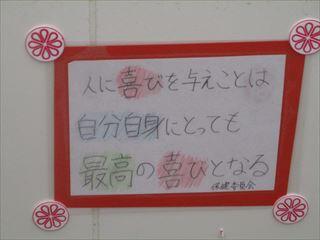 人に喜びを与えことは
自分自身にとっても
最高の喜びとなる
保健委員会